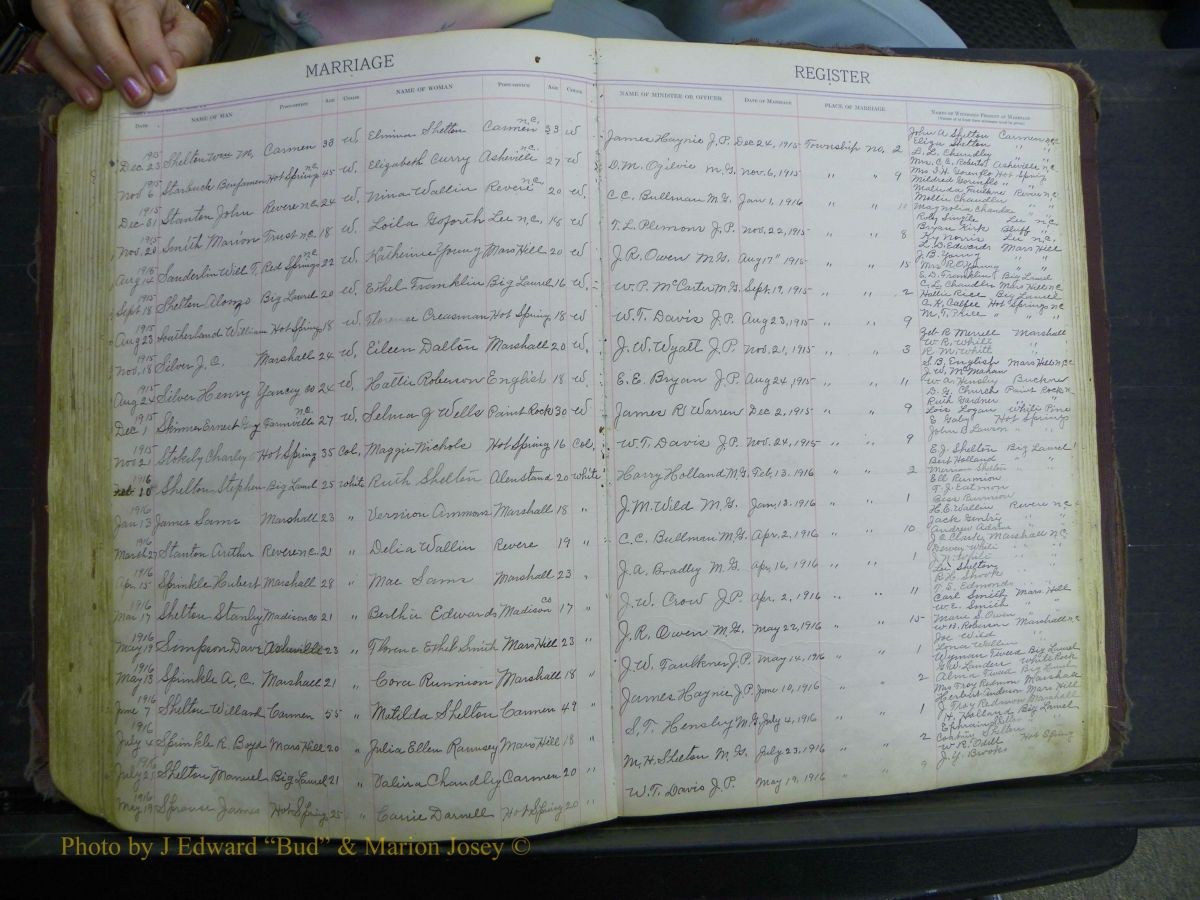 MARRIAGE REGISTER
DATE NAME OF MAN POST-OFFICE AGE COLOR NAME OF WOMAN POST-OFFICE AGE COLOR NAME OF MINISTER OR OFFICER DATE OF MARRIAGE PLACE OF MARRIAGE NAMES OF WITNESSES PRESENT AT MARRIAGE
1915 Dec 23 Shelton Wm M, Carmen 33 W. Elmina Shelton Carmen N.C. 33 W James Haynie J.P. Dec 24, 1915 Township no, 2 John A Shelton Carmen N.C.
Eliza Shelton " "
L. L. Chandley
1915 Nov 6 Starbuck Benjamen Hot Spring N.C. 45 W Elizabeth Curry Asheville N.C. 27 W D.M. Ogilvie M.G. Nov. 6, 1915 " " 9 Mrs. C.C. Roberts Asheville N.C.
Mrs I.H. Gorenflo Hot Spring
Mildred Gorenflo " "
1915 Dec 31 Stanton John Revere N.C. 24 W, Nina Wallin Revere N.C. 20 W, C.C. Bullman M.G. Jan 1, 1916 " " Malinda Faulkner Revere N.C.
Mollie Chandler " "
Magnolia Chandler " "
1915 Nov. 20 Smith Marion Trust N.C. 18 W, Loila Goforth Lee N.C. 18 W T.L. Plemons J.P. Nov. 22, 1915 " " 8 Roby Suttle Lee N.C.
Bryan Kirk Bluff "
Ky Norris Lee N.C.
1915 Aug 14 Sanderlin Will T. Red Springs N.C. 22 W Katherine Young Mars Hill 20 W J.R. Owen M.G. Aug 17" 1915 " " 15 L. D. Edwards Mars Hill
J. B. Young " "
Mrs R.O. Young " "
1915 Sept 18 Shelton Alonzo Big Laurel 20 W Ethel Franklin Big Laurel 16 W, W.P. McCarter M.G. Sept. 19, 1915 " " 2 E. D. Franklin Big Laurel
C. L. Chandler Mars Hill N.C.
Hattie Rice Big Laurel
1915 Aug 23 Southerland William Hot Spring 18 W Florence Creasman Hot Spring 18 W W.T. Davis J.P. Aug 23, 1915 " " 9 M. T. Price " "
1915 Nov. 18 Silver J. C. Marshall 24 W, Eileen Dalton Marshall 20 W, J.W. Wyatt J.P. Nov. 21, 1915 " " 3 Zeb R Merrell Marshall
W R. Whitt "
R M. Whitt "
1915 Aug 24 Silver Henry Yancey Co 24 W. Hattie Roberson English 18 W E.E. Bryan J.P. Aug 24, 1915 " " 11 S. B. English Mars Hill N.C.
J. W. McMahan
W. A. Hensley Buckner
1915 Dec 1 Skinner Ernest Guy Farmville N.C. 27 W. Selma G Wells Paint Rock 30 W James R Warren Dec 2, 1915 " " 9 D. G. Church Paint Rock N.C.
Ruth Gardner
Lois Logan White Pine
1915 Nov 21 Stokely Charley Hot Spring 35 Col, Maggie Nichols Hot Spring 16 Col, W.T. Davis J.P. Nov. 24, 1915 " " 9 E Gaby Hot Springs
John B Lawson " "
1916 Feb 10 Shelton Stephen Big Laurel 25 White Ruth Shelton Allenstand 20 White Harry Holland M.G. Feb. 13, 1916 " " 2 E.J. Shelton Big Laurel
Bert Holland
Marion Shelton
1916 Jan 13 James Sams Marshall 23 " Vernion Ammons Marshall 18 " J.M. Wild M.G. Jan, 13, 1916 " " 1 Ell Runnion
T. J. Eatmon
Bess Runnion
1916 March 27 Stanton Arthur Revere N.C. 21 " Delia Wallin Revere 19 " C.C. Bullman M.G. Apr. 2, 1916 " " 10 H. E. Wallin Revere N.C.
Jack Gentry
Andrew Adams
1916 Apr. 15 Sprinkle Hubert Marshall 28 " Mae Sams Marshall 23 " J.A. Bradley M.G. Apr, 16, 1916 " " 1 J. C. Clark Marshall N.C.
J. N. White
1916 Mar 17 Shelton Stanley Madison Co 21 " Berthie Edwards Madison Co 17 " J.W. Crow J.P. Apr. 2, 1916 " " 11 Lee Shelton
T. S. Edmonds
1916 May 19 Simpson Dave Asheville 23 " Florence Ethel Smith Mars Hill 23 " J.R. Owen M.G. May 22, 1916 " " 15 Carl Smith Mars Hill
W. E. Smith " "
Marie S. Owen " "
1916 May 13 Sprinkle A, C, Marshall 21 " Cora Runnion Marshall 18 " J.W. Faulkner J.P. May 14, 1916 " " 1 W. B. Roberson Marshall N.C.
Joe Wild
1916 June 7 Shelton Willard Carmen 55 " Matilda Shelton Carmen 49 " James Haynie J.P. June 10, 1916 " " 2 Wyman Tweed Big Laurel
G.W. Landers White Rock
Alma Tweed Big Laurel
1916 July 4 Sprinkle R. Boyd Mars Hill 20 " Julia Ellen Ramsey Mars Hill 18 " S.T. Hensley M.G. July 4, 1916 " " 1 Mrs Troy Redmon Marshall
Herbert Anderson Mars Hill
J. Troy Redmon Marshall
1916 July 21 Shelton Manuel Big Laurel 21 " Valira Chandley Carmen 20 " M.H. Shelton M.G. July 23, 1916 " " 2 H. Holland Big Laurel
1916 May 19 Sprouse James Hot Spring 25 " Carrie Darnell Hot Spring 20 " W.T. Davis J.P. May 19, 1916 " " 9 W. R. Odell Hot Spring
J. Y. Brooks
Photo by J Edward "Bud" & Marion Josey ©